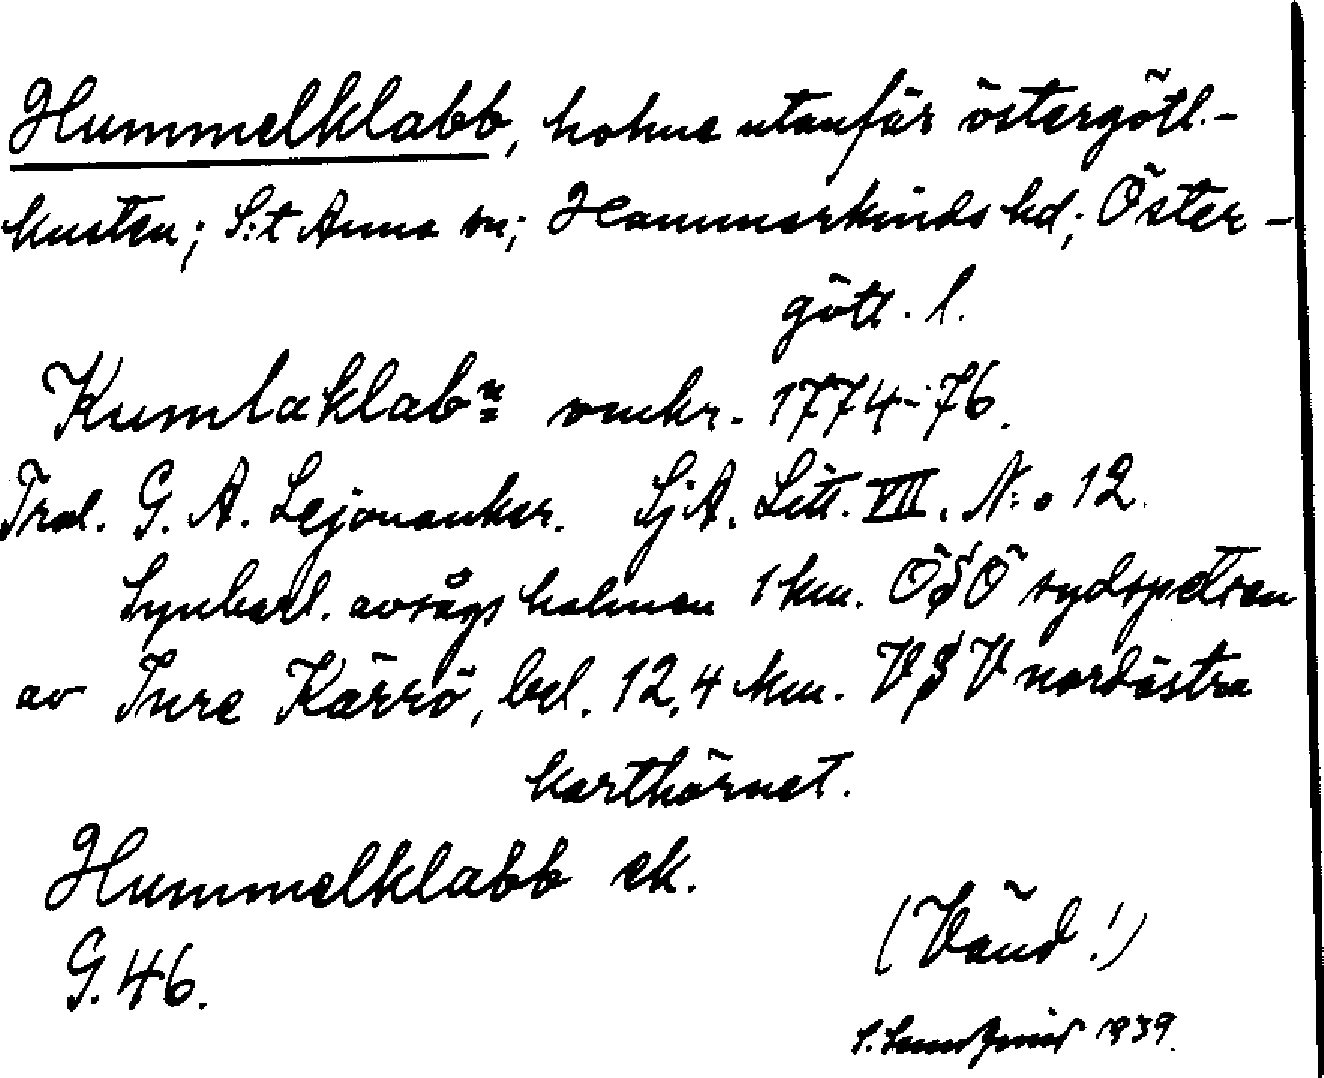 Hummelklabb, holme utanför östergötl.-
kusten; S:t Anna sn; Hammarkinds hd; Öster-
götl. l.
Kumlaklabn omkr. 1774-76.
Tral. G. A. Lejonanker. SjA. Litt. VIII. N:o 12.
Synbarl. avsågs holmen 1 km. OSO sydspetsen
av Inre Kärrö, bel. 12,4 km. VSV nordöstra
karthörnet.
Hummelklabb ek.
G. 46.
(Vänd!)
1939.